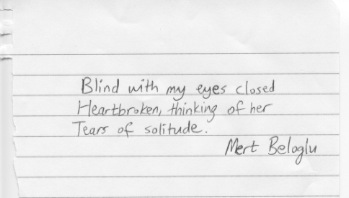 Blind with my eyes closed
Heartbroken, thinking of her
Tears of solitude.
Mert Beloglu